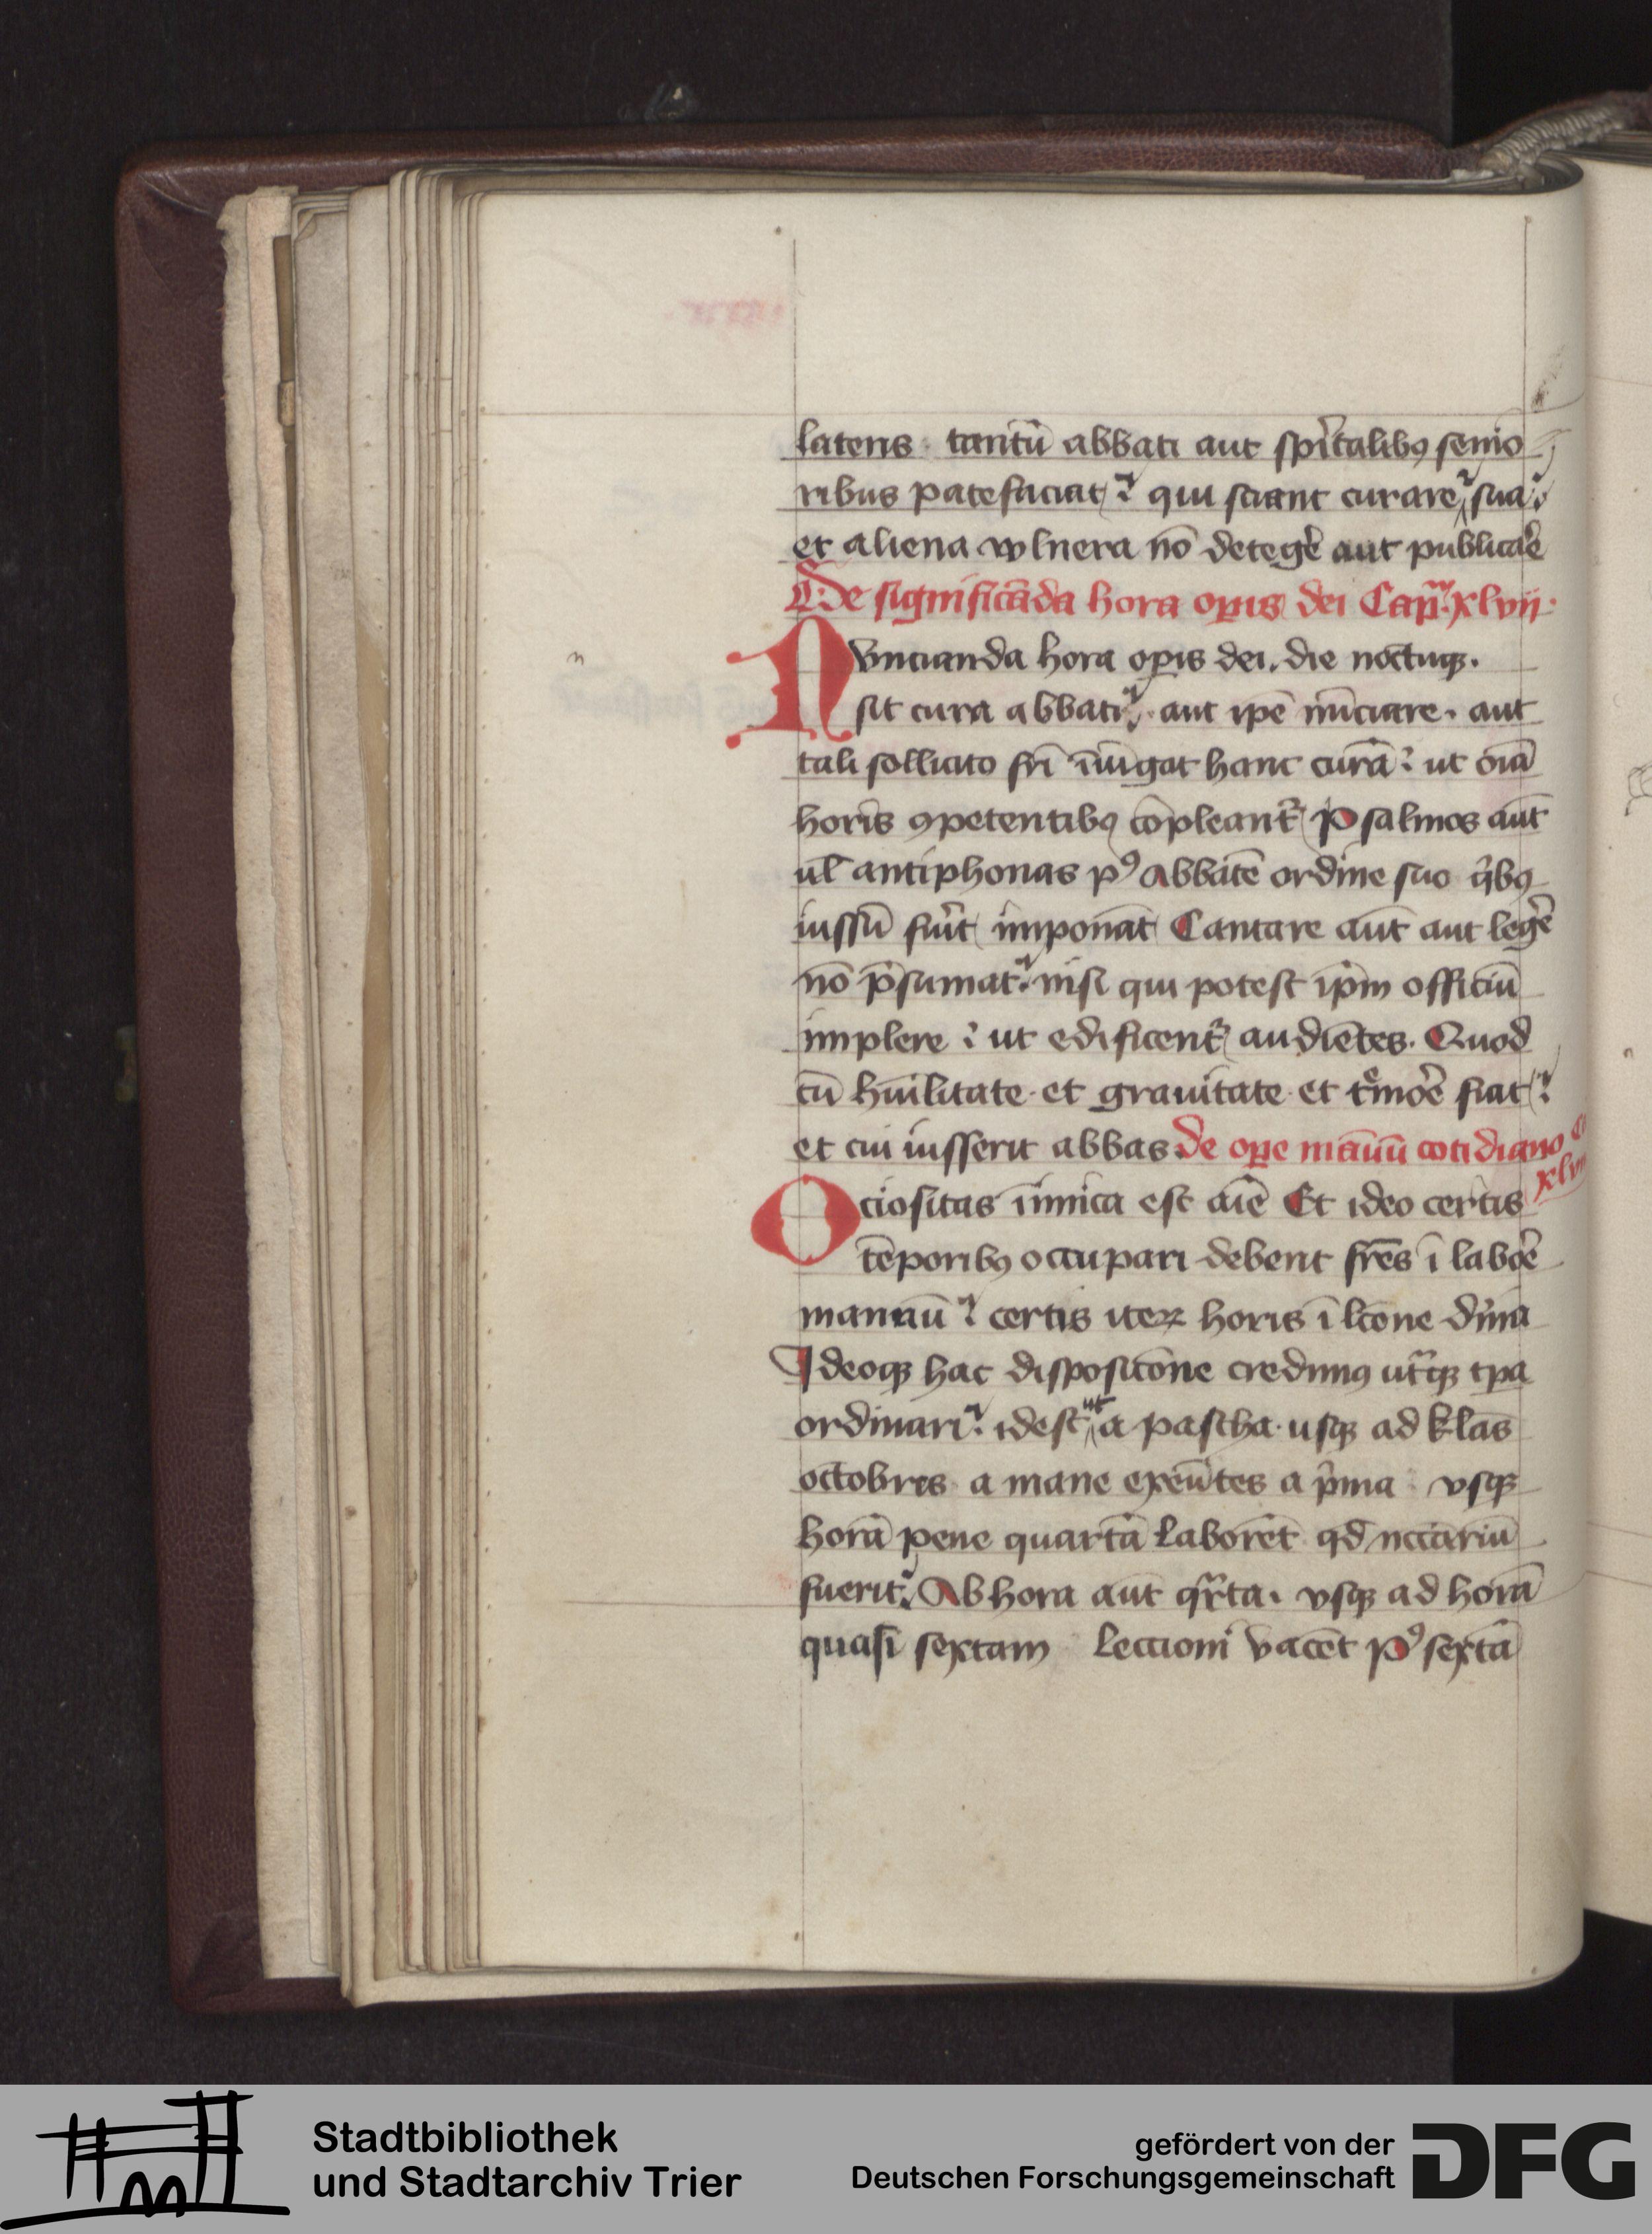 latens · tantū abbati aut spiritalibꝯ senio
ribus patefaciat ⁊ qui sciant curare sua
et aliena vvlnera nō detegē aut publicāe
De significāda hora oꝑis dei Capm xlvij·
Nvncianda hora oꝑis dei. die noctuqꝫ.
sit cura abbatis aut ipē nūciare. aut
tali sollicito fri īiūgat hanc curā: ut oīa
horis ꝯpetentibꝯ cōpleantr Psalmos aūt
ul̄ antiphonas pꝰ abbatē ordine suo qibꝯ
iussū fuīt imponāt Cantare aūt aut legē
nō p̄sumat nisi qui potest ip̄m officiū
implere : ut edificentr audiētes. Quod
cū hūilitate · et grauitate · et tmoē fiat
et cui iusserit abbas De oꝑe manuū cotidiano
xlvi
Ociositas inimica est aīe Et ideo certis
tēporibꝯ occupari debent frēs ī laboē
manuū certis iteꝝ horis ī lcōne diuīa
Ideoqꝫ hac disposicōne credimꝯ utraqꝫ tpa
ordinari idest ut a pascha · usqꝫ ad klās
octobres a mane exeūtes a pima vsqꝫ
horā pene quartā laborēt qd nccāriū
fuerit Ab hora aūt qrta. vsqꝫ ad horā
quasi sextam Leccioni vacēt Pꝰ sextā
n
Stadtbibliothek
und Stadtarchiv Trier
gefördert von der
Deutschen Forschungsgemeinschaft
DFG